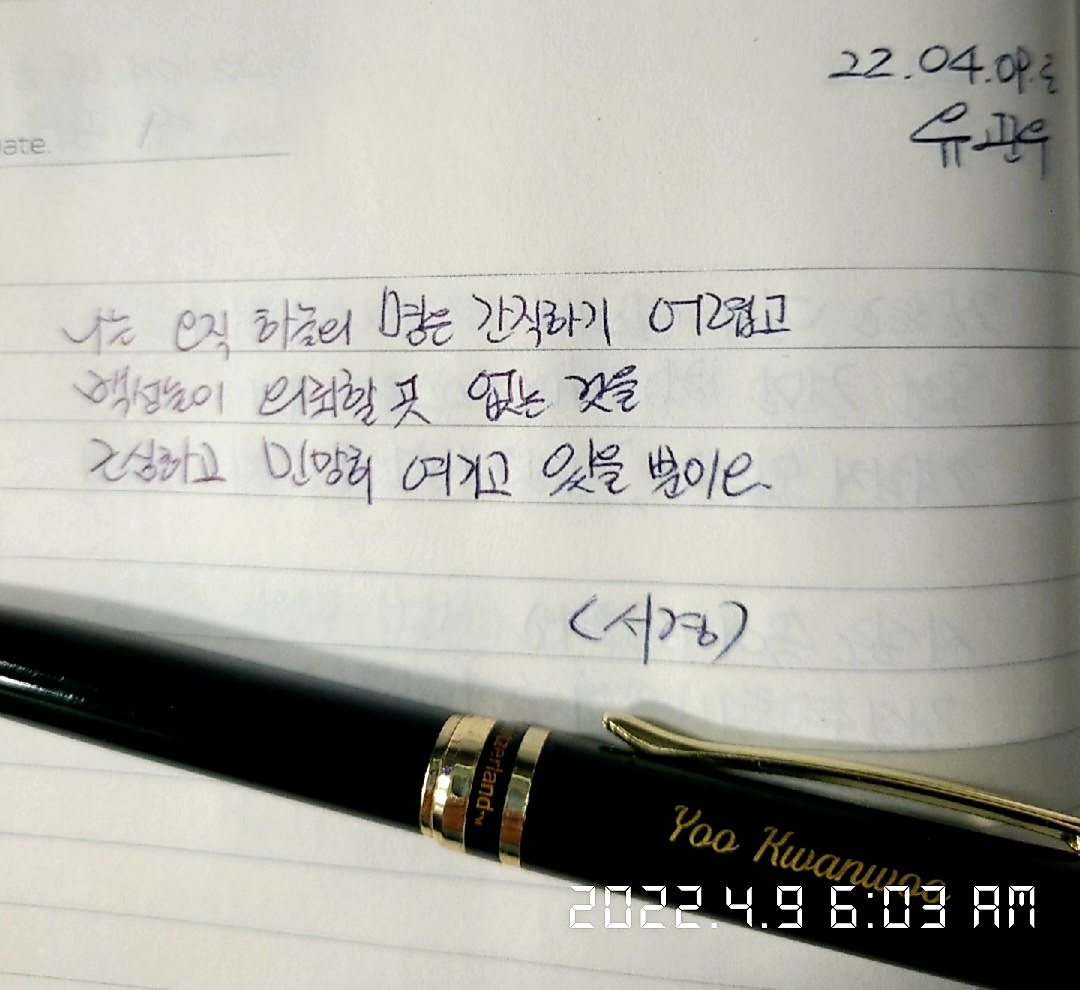 22.04.09.토
유관우
ate.
나는 오직 하늘의 명은 간직하기 어렵고
백성들이 의뢰할 곳 없는 것을
근심하고 민망히 여기고 있을 뿐이오.
(서경)
tzerland
Yoo Kwanwoo
2022.4.9 6:03 AM